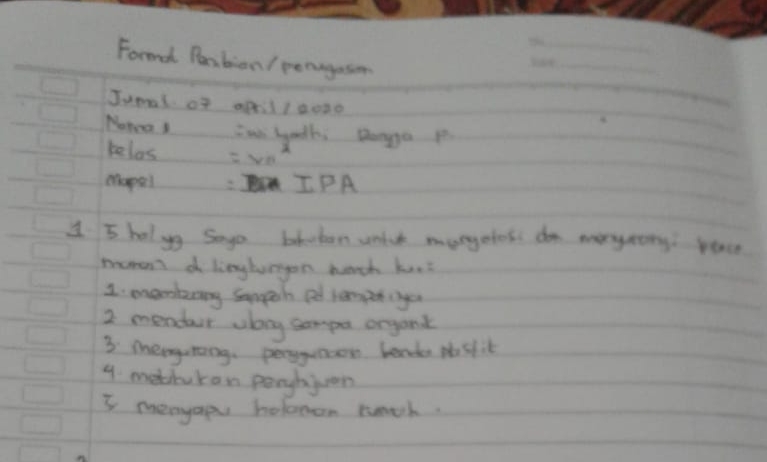 Format Penilaian/penugasan
Jumat 07 april/2020
Nama : Rangga P.
kelas = VII²
mapel : IPA
1 5 hal yg Saya lakukan untuk mengatasi dan mengurangi pence
maran di lingkungan rumah
1. membuang sampah pd tempatnya
2 mendaur ulang sampa organik
3. mengurangi penggunaan benda plastik
4. melakukan penghijuan
5 menyapu halaman rumah.